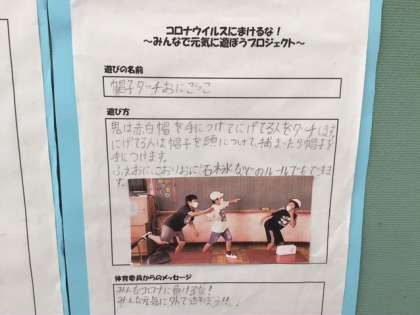 コロナウイルスにまけるな！
～みんなで元気に遊ぼうプロジェクト～
遊びの名前
帽子タッチおにごっこ
遊び方
鬼は赤白帽を手につけてにげてる人をタッチします
にげてる人は帽子を頭につけて、捕まったら帽子を
手につけます。
ふえおに、こおりおに、などのルールでもできま
す。
体育委員からのメッセージ
みんなコロナに負けるな！
みんな元気に外で遊ぼう！！